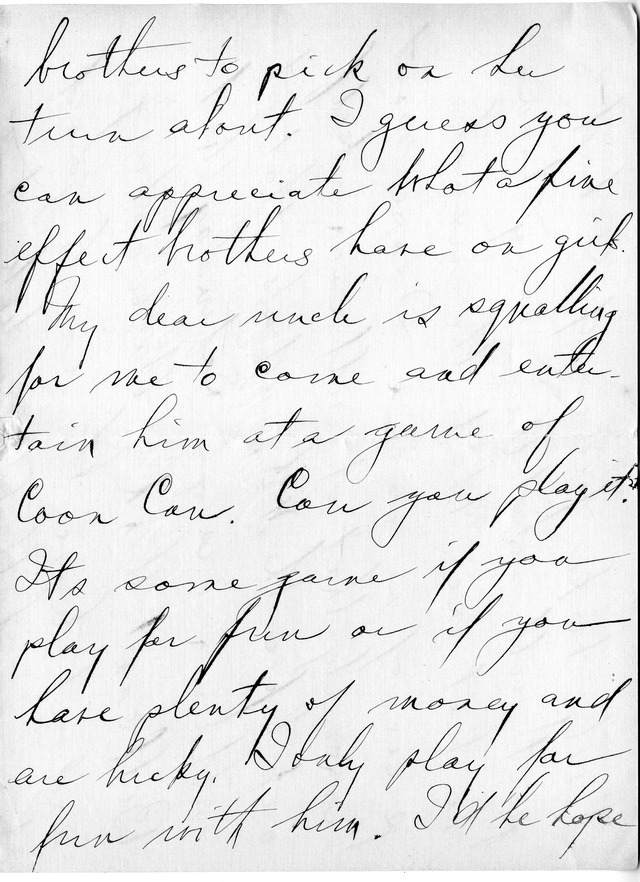 brothers to pick on her
turn about. I guess you
can appreciate what a fine
effect brothers have on girls.
My dear uncle is squalling
for me to come and enter-
tain him at a game of
Coon Can. Can you play it?
Its some game if you
play for fun or if you
have plenty of money and
are lucky. I only play for
fun with him. I'd be hope